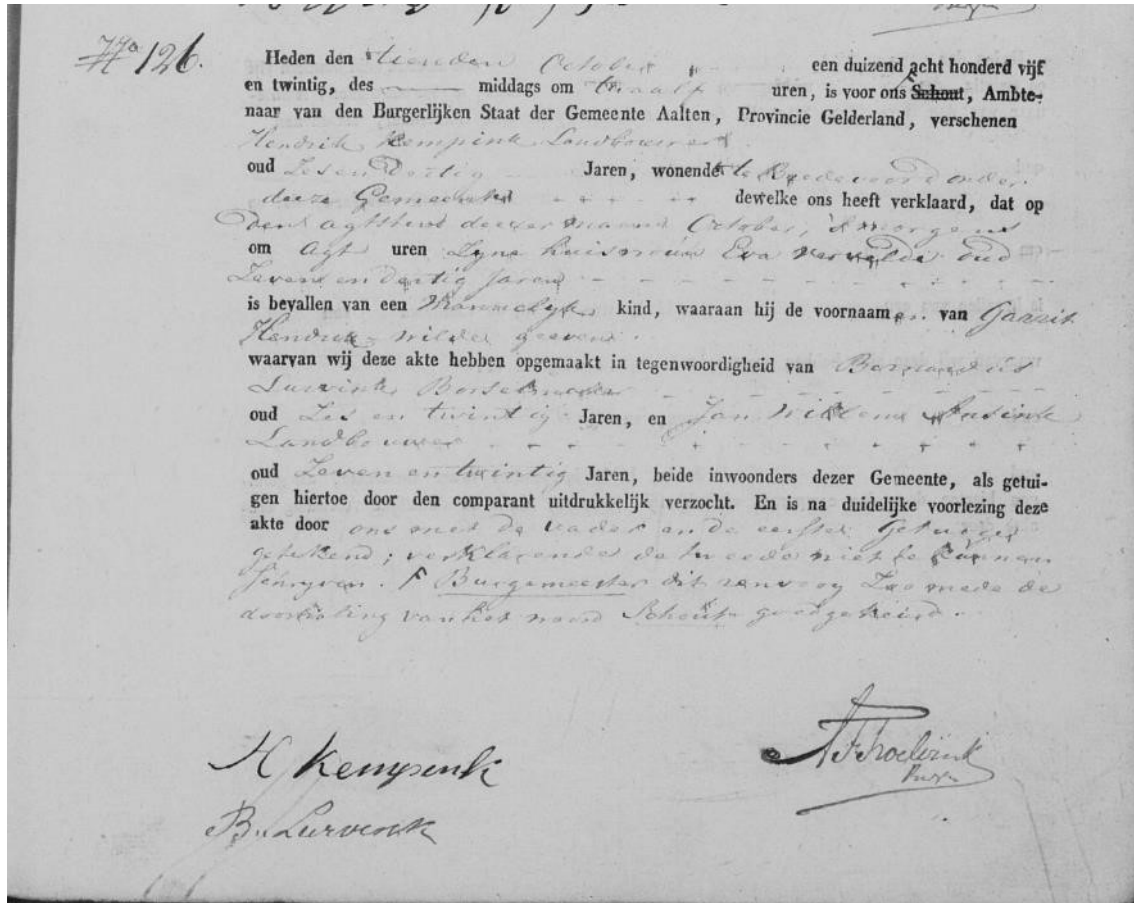 No 126.
Heden den tienden October een duizend acht honderd vijf
en twintig, des middags om twaalf uren, is voor ons Schout, Ambte-
naar van den Burgerlijken Staat der Gemeente Aalten, Provincie Gelderland, verschenen
Hendrik Kempink Landbouwer
oud Zes en Dertig Jaren, wonende te Bredevoord onder
deeze Gemeente dewelke ons heeft verklaard, dat op
den agtsten deezer maand October, 's morgens
om Agt uren Zyne huisvrouw Eva Vervelde oud
Zeven en dertig Jaren
is bevallen van een Mannelyk kind, waaraan hij de voornaamen van Gaarit
Hendrik wilde geeven.
waarvan wij deze akte hebben opgemaakt in tegenwoordigheid van Bernardus
Lurvink
oud Zes en twintig Jaren, en Jan Willem
Landbouwer
oud Zeven en twintig Jaren, beide inwoonders dezer Gemeente, als getui-
gen hiertoe door den comparant uitdrukkelijk verzocht. En is na duidelijke voorlezing deze
akte door ons met de vader en de eerste Getuige
getekend; verklarende de tweede niet te kunnen
Schryven. F Burgemeester dit renvooy Zoo mede de
doorhaling van het woord Schout goedgekeurd.
H Kempink
B. Lurvink